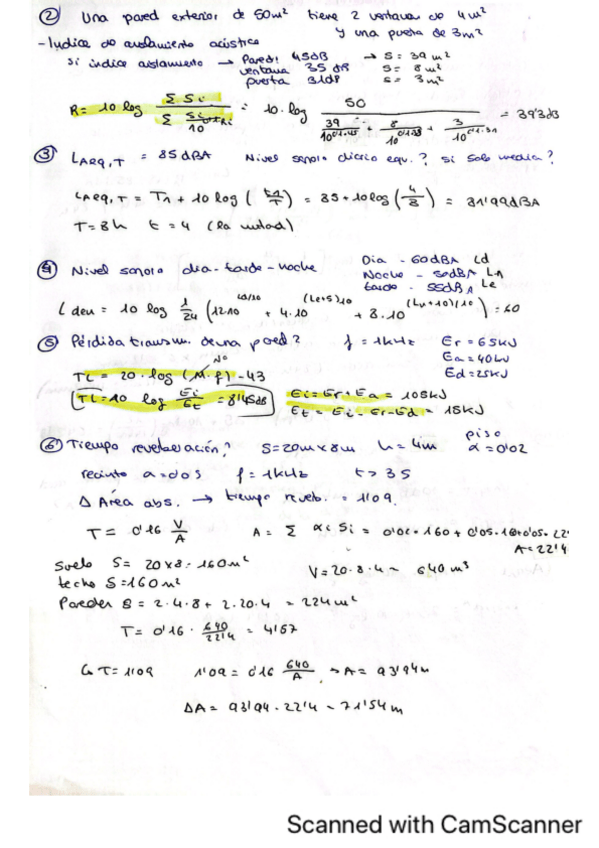 ② Una pared exterior de 50m² tiene 2 ventanas de 4m²
y una puerta de 3m²
- Indice de aislamiento acústico
Si indice aislamiento → Pared: 45dB → S = 39 m²
ventana 35 dB S = 8 m²
puerta 31dB S = 3 m²
R = 10 log Σ Si / Σ Si/10^0'1Ri = 10 · log 50 / (39/10^0'1·45 + 8/10^0'1·38 + 3/10^0'1·31) = 39'3dB
③ LAeq,T = 85dBA Nivel sonoro diario equ.? si solo media?
LAeq,T = T1 + 10 log (t1/T) = 85 + 10 log (4/8) = 81'99dBA
T = 8h t = 4 (la mitad)
④ Nivel sonoro día - tarde - noche
Dia - 60dBA Ld
Noche - 50dBA Ln
tarde - 55dBA Le
Lden = 10 log 1/24 (12·10^Ld/10 + 4·10^(Le+5)/10 + 8·10^(Ln+10)/10) = 60
⑤ Pérdida transm. de una pared? f = 1kHz Er = 65kJ
Ea = 40kJ
Ed = 25kJ
No
TL = 20 · log (M·f) - 43
TL = 10 log Ei/Et = 8'45dB
Ei = Er + Ea = 105kJ
Et = Ei - Er - Ed = 15kJ
⑥ Tiempo reverberación? S = 20m x 8m h = 4m piso α = 0'02
recinto a = 0'05 f = 1kHz t > 3S
Δ Área abs. → tiempo reverb. = 1'09.
T = 0'16 V/A A = Σ αi Si = 0'02 · 160 + 0'05 · 160 + 0'05 · 22
A = 22'4
Suelo S = 20 x 8 = 160m²
techo S = 160m²
V = 20 · 8 · 4 = 640 m³
Paredes S = 2 · 4 · 8 + 2 · 20 · 4 = 224m²
T = 0'16 · 640/22'4 = 4'57
↳ T = 1'09 1'09 = 0'16 640/A → A = 93'94m
ΔA = 93'94 - 22'4 = 71'54m
Scanned with CamScanner